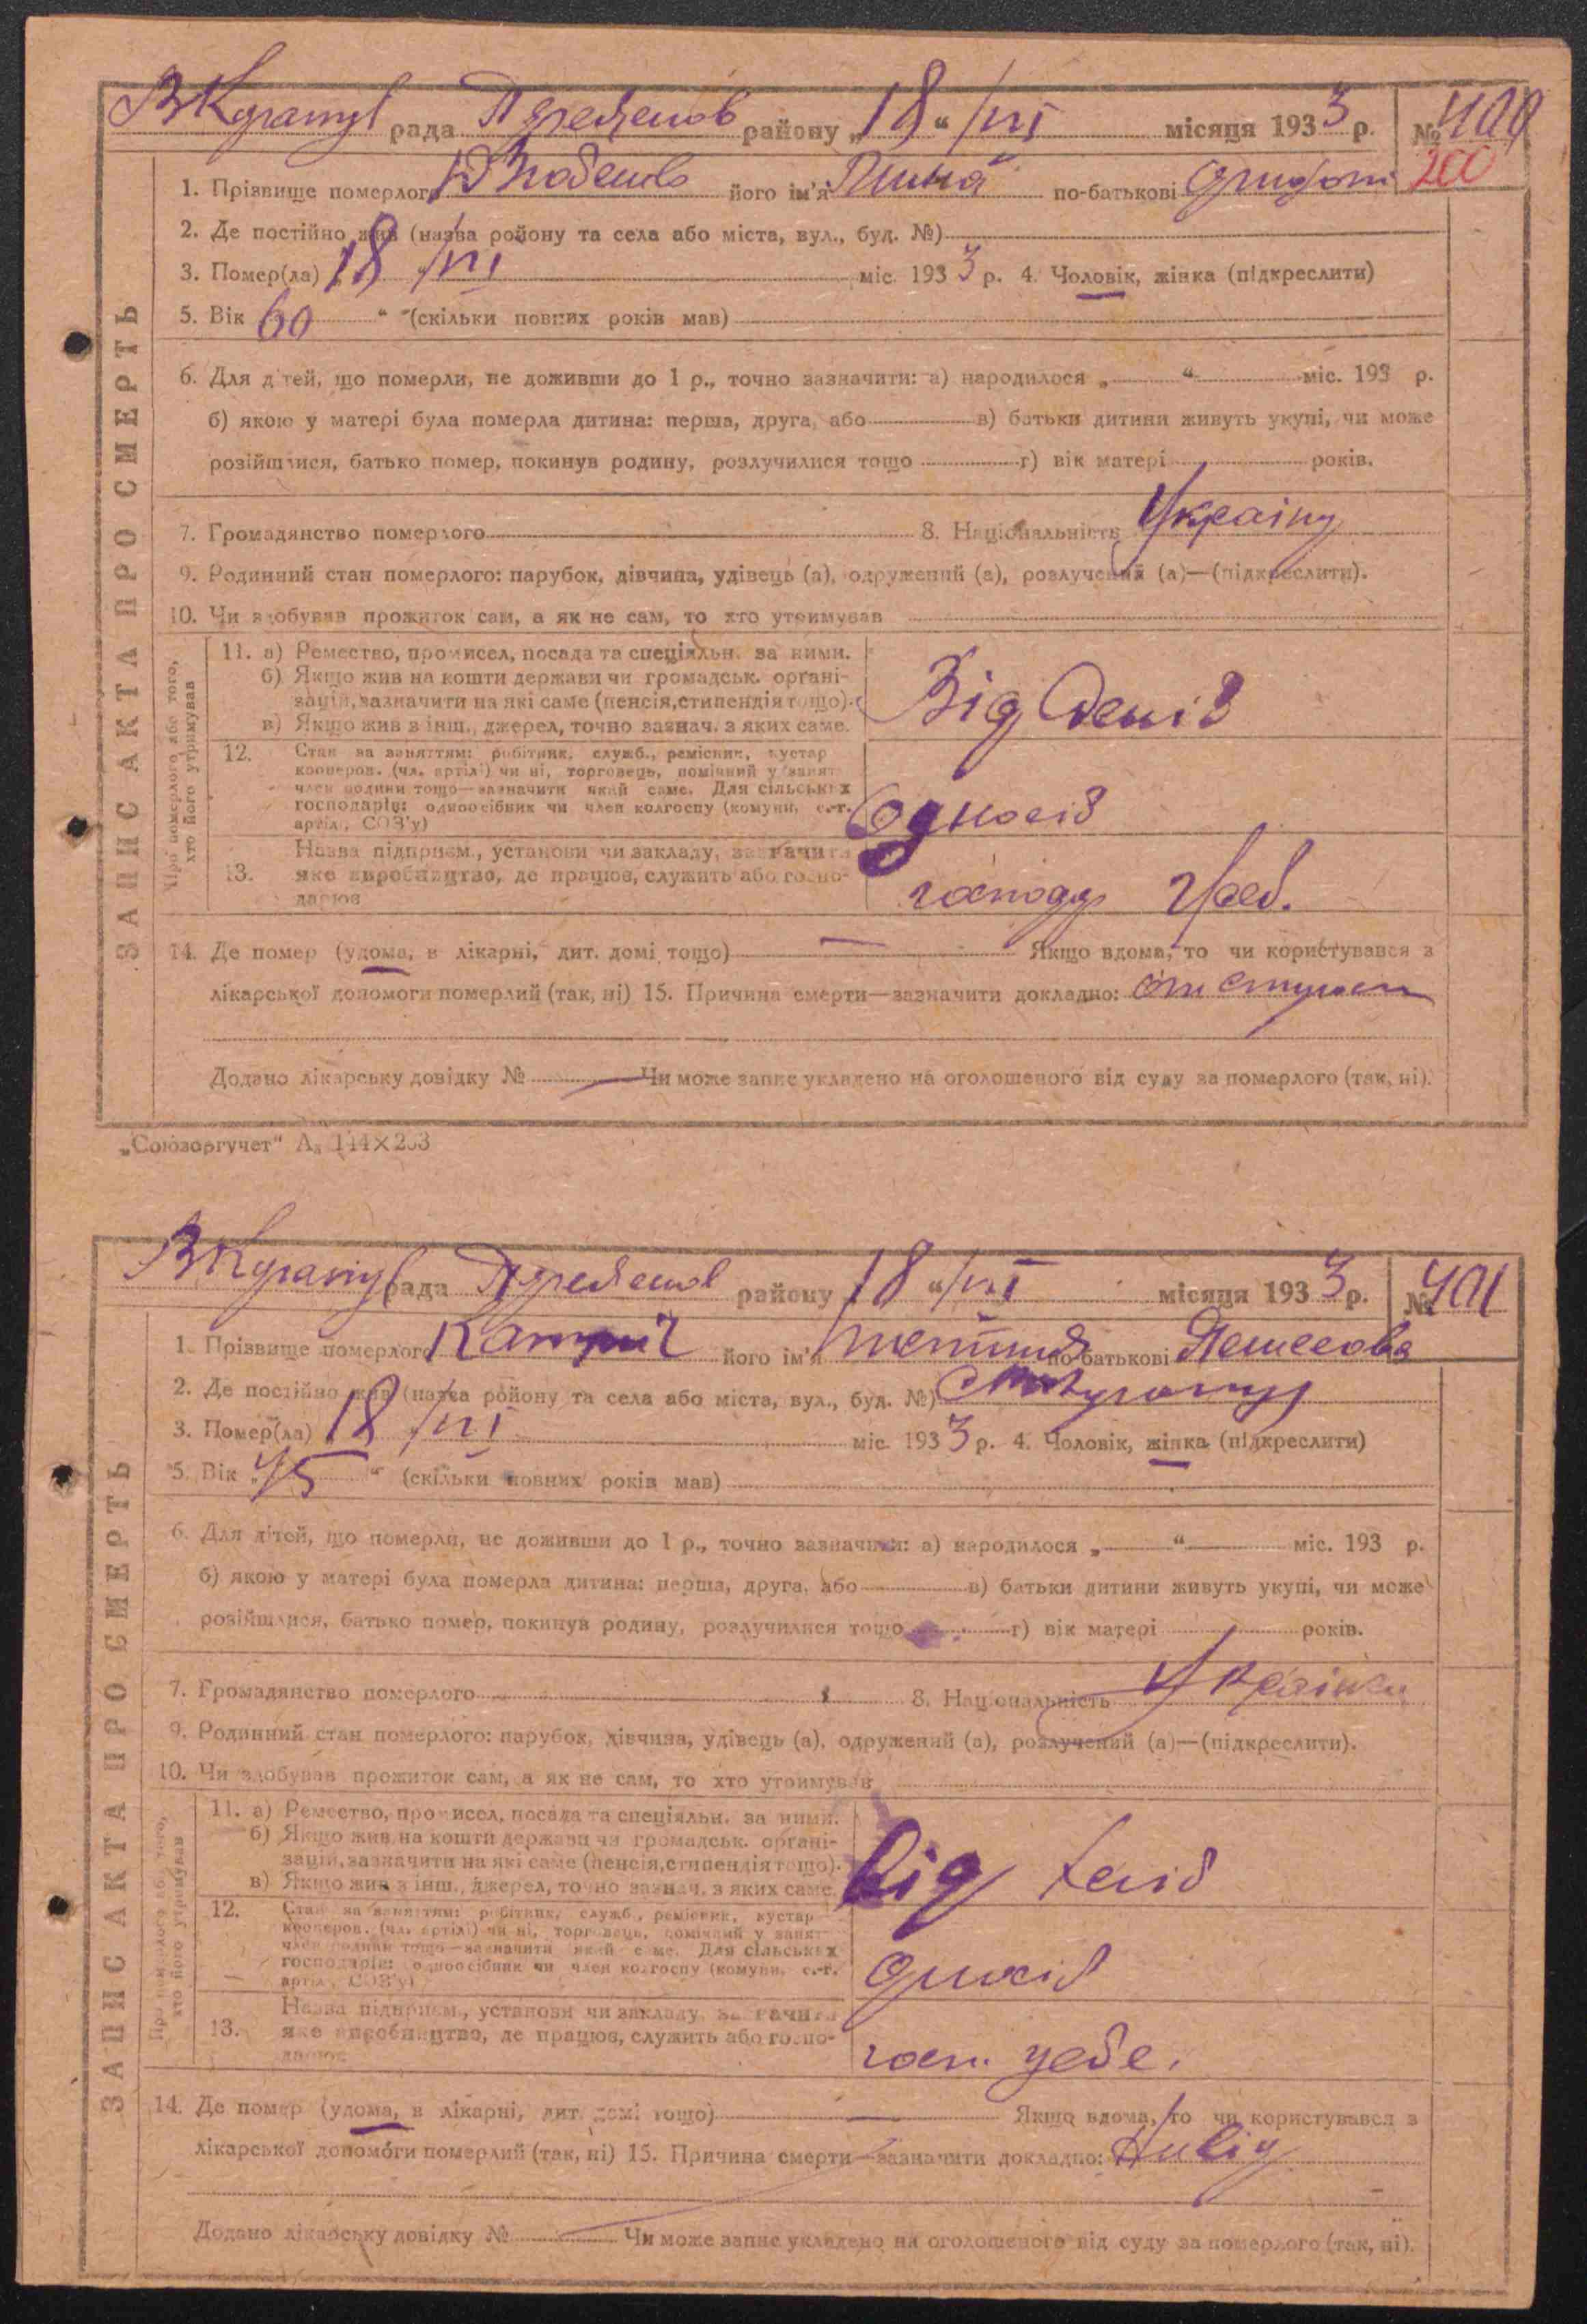 рада району „18“ /VI місяця 1933 р. № 400
200
1. Прізвище померлого його ім'я по-батькові
2. Де постійно жив (назва ройону та села або міста, вул., буд. №)
3. Помер(ла) 18 /VI міс. 1933 р. 4. Чоловік, жінка (підкреслити)
5. Вік 60 “ (скільки повних років мав)
6. Для дітей, що померли, не доживши до 1 р., точно зазначити: а) народилося „ “ міс. 193 р.
б) якою у матері була померла дитина: перша, друга, або в) батьки дитини живуть укупі, чи може
розійшлися, батько помер, покинув родину, розлучилися тощо г) вік матері років.
7. Громадянство померлого 8. Національність Україну
9. Родинний стан померлого: парубок, дівчина, удівець (а), одружений (а), розлучений (а)—(підкреслити).
10. Чи здобував прожиток сам, а як не сам, то хто утримував
ЗАПИС АКТА ПРО СМЕРТЬ
Про померлого або того,
хто його утримував
11. а) Ремество, промисел, посада та спеціяльн. за ними.
б) Якщо жив на кошти держави чи громадськ. органі-
зацій, зазначити на які саме (пенсія, стипендія тощо).
в) Якщо жив з інш., джерел, точно зазнач. з яких саме.
Від
12. Стан за заняттям: робітник, служб., ремісник, кустар
кооперов. (чл. артілі) чи ні, торговець, помічний у занят
член родини тощо—зазначити який саме. Для сільських
господарів: одноосібник чи член колгоспу (комуни, с.-г.
артілі, СОЗ'у)
Односіб
13. Назва підприєм., установи чи закладу, зазначити
яке виробництво, де працюв, служить або госпо-
дарюв
господ
14. Де помер (удома, в лікарні, дит. домі тощо) Якщо вдома, то чи користувався з
лікарської допомоги померлий (так, ні) 15. Причина смерти—зазначити докладно:
Додано лікарську довідку № Чи може запис укладено на оголошеного від суду за померлого (так, ні).
„Союзоргучет“ А₅ 144×203
рада району 18 “ /VI місяця 1933 р. № 401
1. Прізвище померлого його ім'я по-батькові
2. Де постійно жив (назва ройону та села або міста, вул., буд. №)
3. Помер(ла) 18 /VI міс. 1933 р. 4. Чоловік, жінка (підкреслити)
5. Вік „45 “ (скільки повних років мав)
6. Для дітей, що померли, не доживши до 1 р., точно зазначити: а) народилося „ “ міс. 193 р.
б) якою у матері була померла дитина: перша, друга, або в) батьки дитини живуть укупі, чи може
розійшлися, батько помер, покинув родину, розлучилися тощо г) вік матері років.
7. Громадянство померлого 8. Національність Українка
9. Родинний стан померлого: парубок, дівчина, удівець (а), одружений (а), розлучений (а)—(підкреслити).
10. Чи здобував прожиток сам, а як не сам, то хто утримував
ЗАПИС АКТА ПРО СМЕРТЬ
Про померлого або того,
хто його утримував
11. а) Ремество, промисел, посада та спеціяльн. за ними.
б) Якщо жив на кошти держави чи громадськ. органі-
зацій, зазначити на які саме (пенсія, стипендія тощо).
в) Якщо жив з інш., джерел, точно зазнач. з яких саме.
від
12. Стан за заняттям: робітник, служб., ремісник, кустар
кооперов. (чл. артілі) чи ні, торговець, помічний у занят
член родини тощо—зазначити який саме. Для сільських
господарів: одноосібник чи член колгоспу (комуни, с.-г.
артілі, СОЗ'у)
13. Назва підприєм., установи чи закладу, зазначити
яке виробництво, де працюв, служить або госпо-
дарюв
госп. у себе.
14. Де помер (удома, в лікарні, дит. домі тощо) Якщо вдома, то чи користувався з
лікарської допомоги померлий (так, ні) 15. Причина смерти—зазначити докладно:
Додано лікарську довідку № Чи може запис укладено на оголошеного від суду за померлого (так, ні).